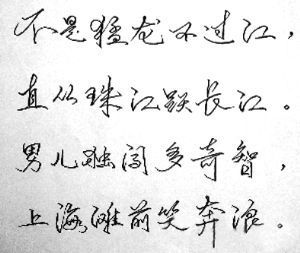 不是猛龙不过江，
直从珠江跃长江。
男儿独闯多奇智，
上海滩前笑奔浪。